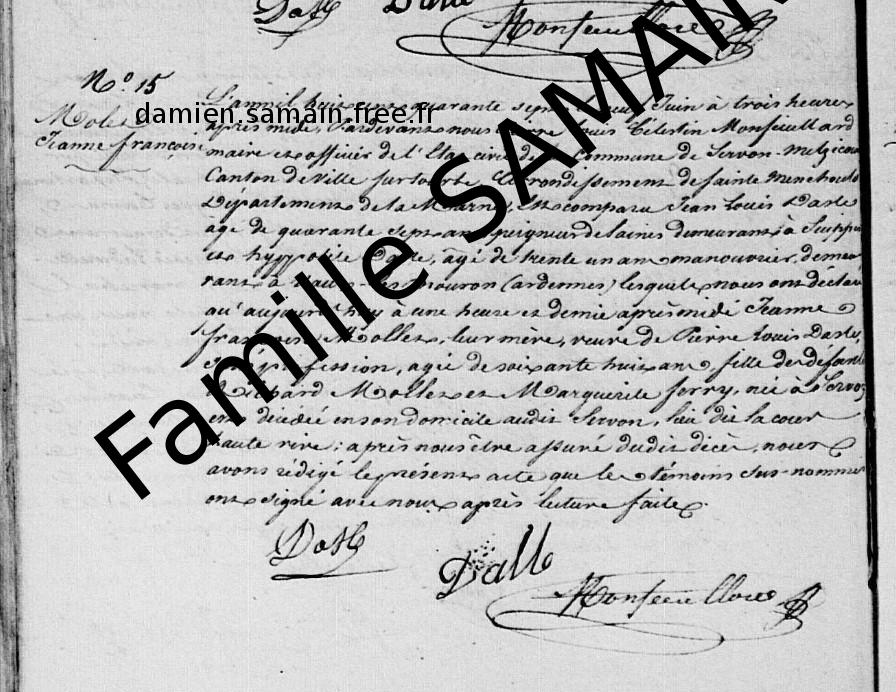 Dasté
Dallé
Montfeuillard
N.º 15
Jeanne françoise
damien.samain.free.fr
L'an mil huit cent quarante sept, Juin à trois heures
après midi, Pardevant nous Louis Célestin Monfeuillard
maire et officier de l'Etat civil de Commune de Servon-Melzicourt
Canton de Ville sur tourbe, arrondissement de sainte menehould
Département de la Marne, est comparu Jean Louis
agé de quarante sept ans peigneur de laines demeurant à Suippe
et hyppolite agé de trente un ans manouvrier, demeu
rant à Mouron (ardennes) lesquels nous ont déclaré
qu'aujourd'huy à une heure et demie après midi Jeanne
françoise Mollet, leur mère, veuve de Pierre Louis
profession, agée de soixante huit ans, fille des défunts
Mollet et Marguerite ferry, née à Servon
est décédée en son domicile audit Servon, lieu dit la cour
haute rive; après nous être assuré dudit décès, nous
avons rédigé le présent acte que les témoins sus-nommés
ont signé avec nous après lecture faite.
Famille SAMAIN
Dasté
Dallé
Montfeuillard